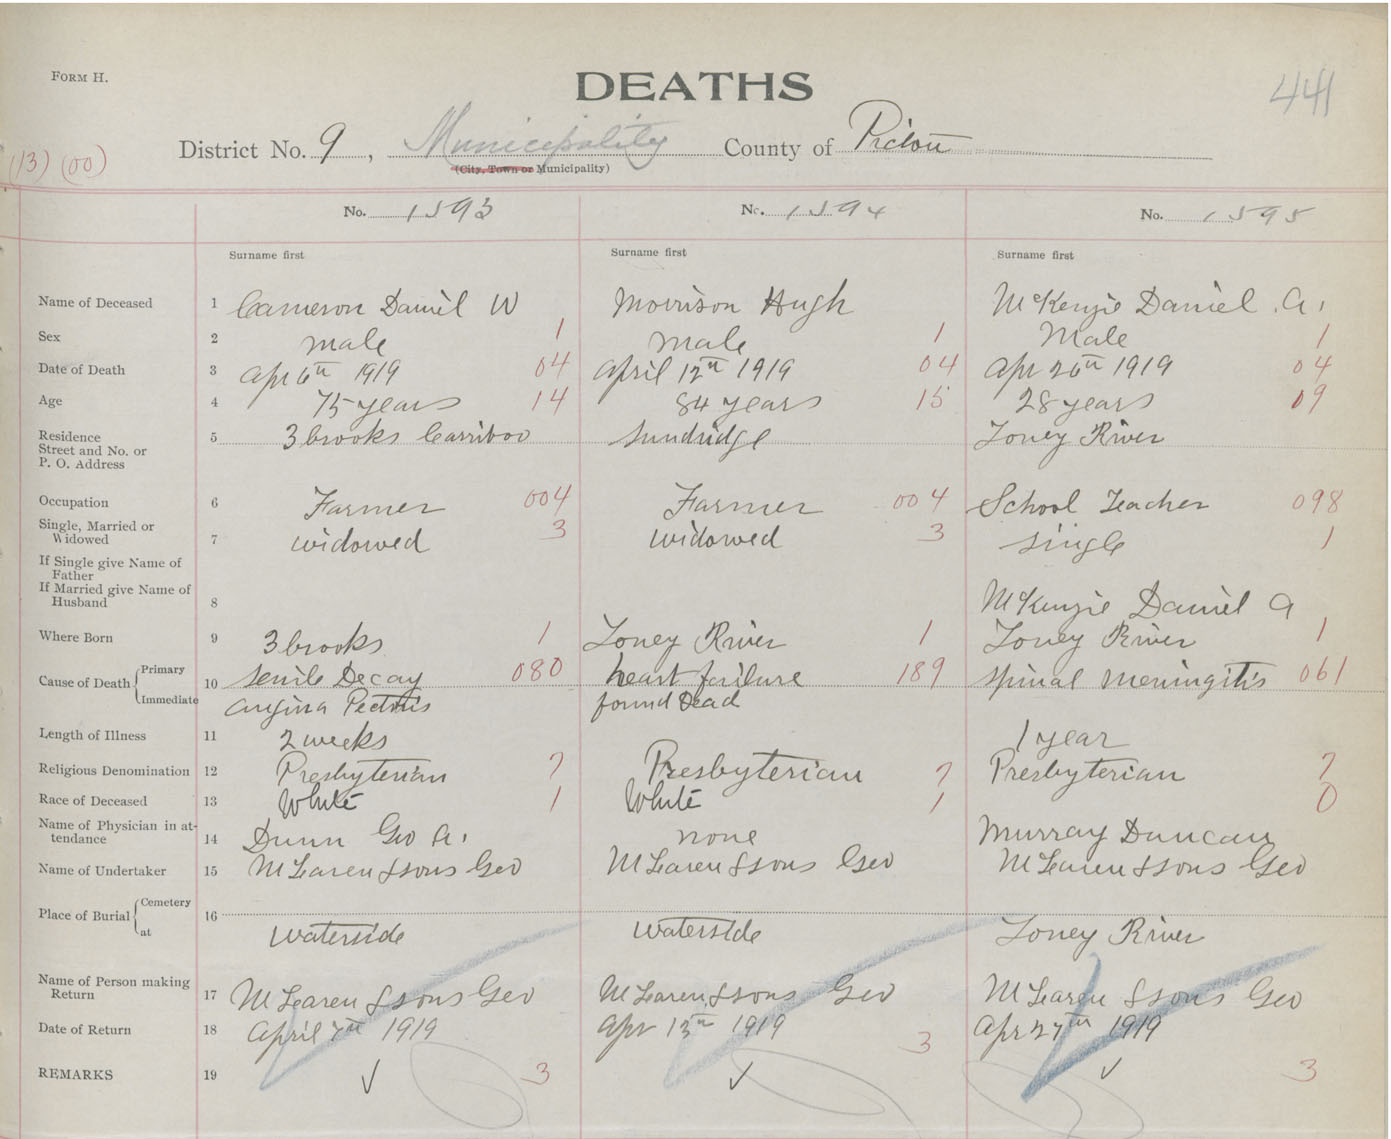 FORM H.
DEATHS
441
(13) (00)
District No. 9, Municipality County of Pictou
(City, Town or Municipality)
No. 1593 No. 1594 No. 1595
Surname first Surname first Surname first
Name of Deceased 1 Cameron Daniel W Morrison Hugh McKenzie Daniel A.
Sex 2 male 1 male 1 Male 1
Date of Death 3 Apr 6th 1919 04 April 12th 1919 04 Apr 26th 1919 04
Age 4 75 years 14 84 years 15 28 years 09
Residence
Street and No. or
P. O. Address
5 3 brooks Carriboo Sundridge Toney River
Occupation 6 Farmer 004 Farmer 004 School Teacher 098
Single, Married or
Widowed 7 widowed 3 widowed 3 single 1
If Single give Name of
Father
If Married give Name of
Husband 8 McKenzie Daniel A
Where Born 9 3 brooks 1 Toney River 1 Toney River 1
Cause of Death Primary 10 Senile Decay 080 heart failure 189 spinal meningitis 061
Immediate angina Pectoris found Dead
Length of Illness 11 2 weeks 1 year
Religious Denomination 12 Presbyterian 7 Presbyterian 7 Presbyterian 7
Race of Deceased 13 White 1 White 1 0
Name of Physician in at-
tendance 14 Dunn Geo A. none Murray Duncan
Name of Undertaker 15 McLaren & sons Geo McLaren & sons Geo McLaren & sons Geo
Place of Burial Cemetery 16
at waterside waterside Toney River
Name of Person making
Return 17 McLaren & sons Geo McLaren & sons Geo McLaren & sons Geo
Date of Return 18 April 7th 1919 Apr 13th 1919 3 Apr 27th 1919
REMARKS 19 ✓ 3 ✓ ✓ 3